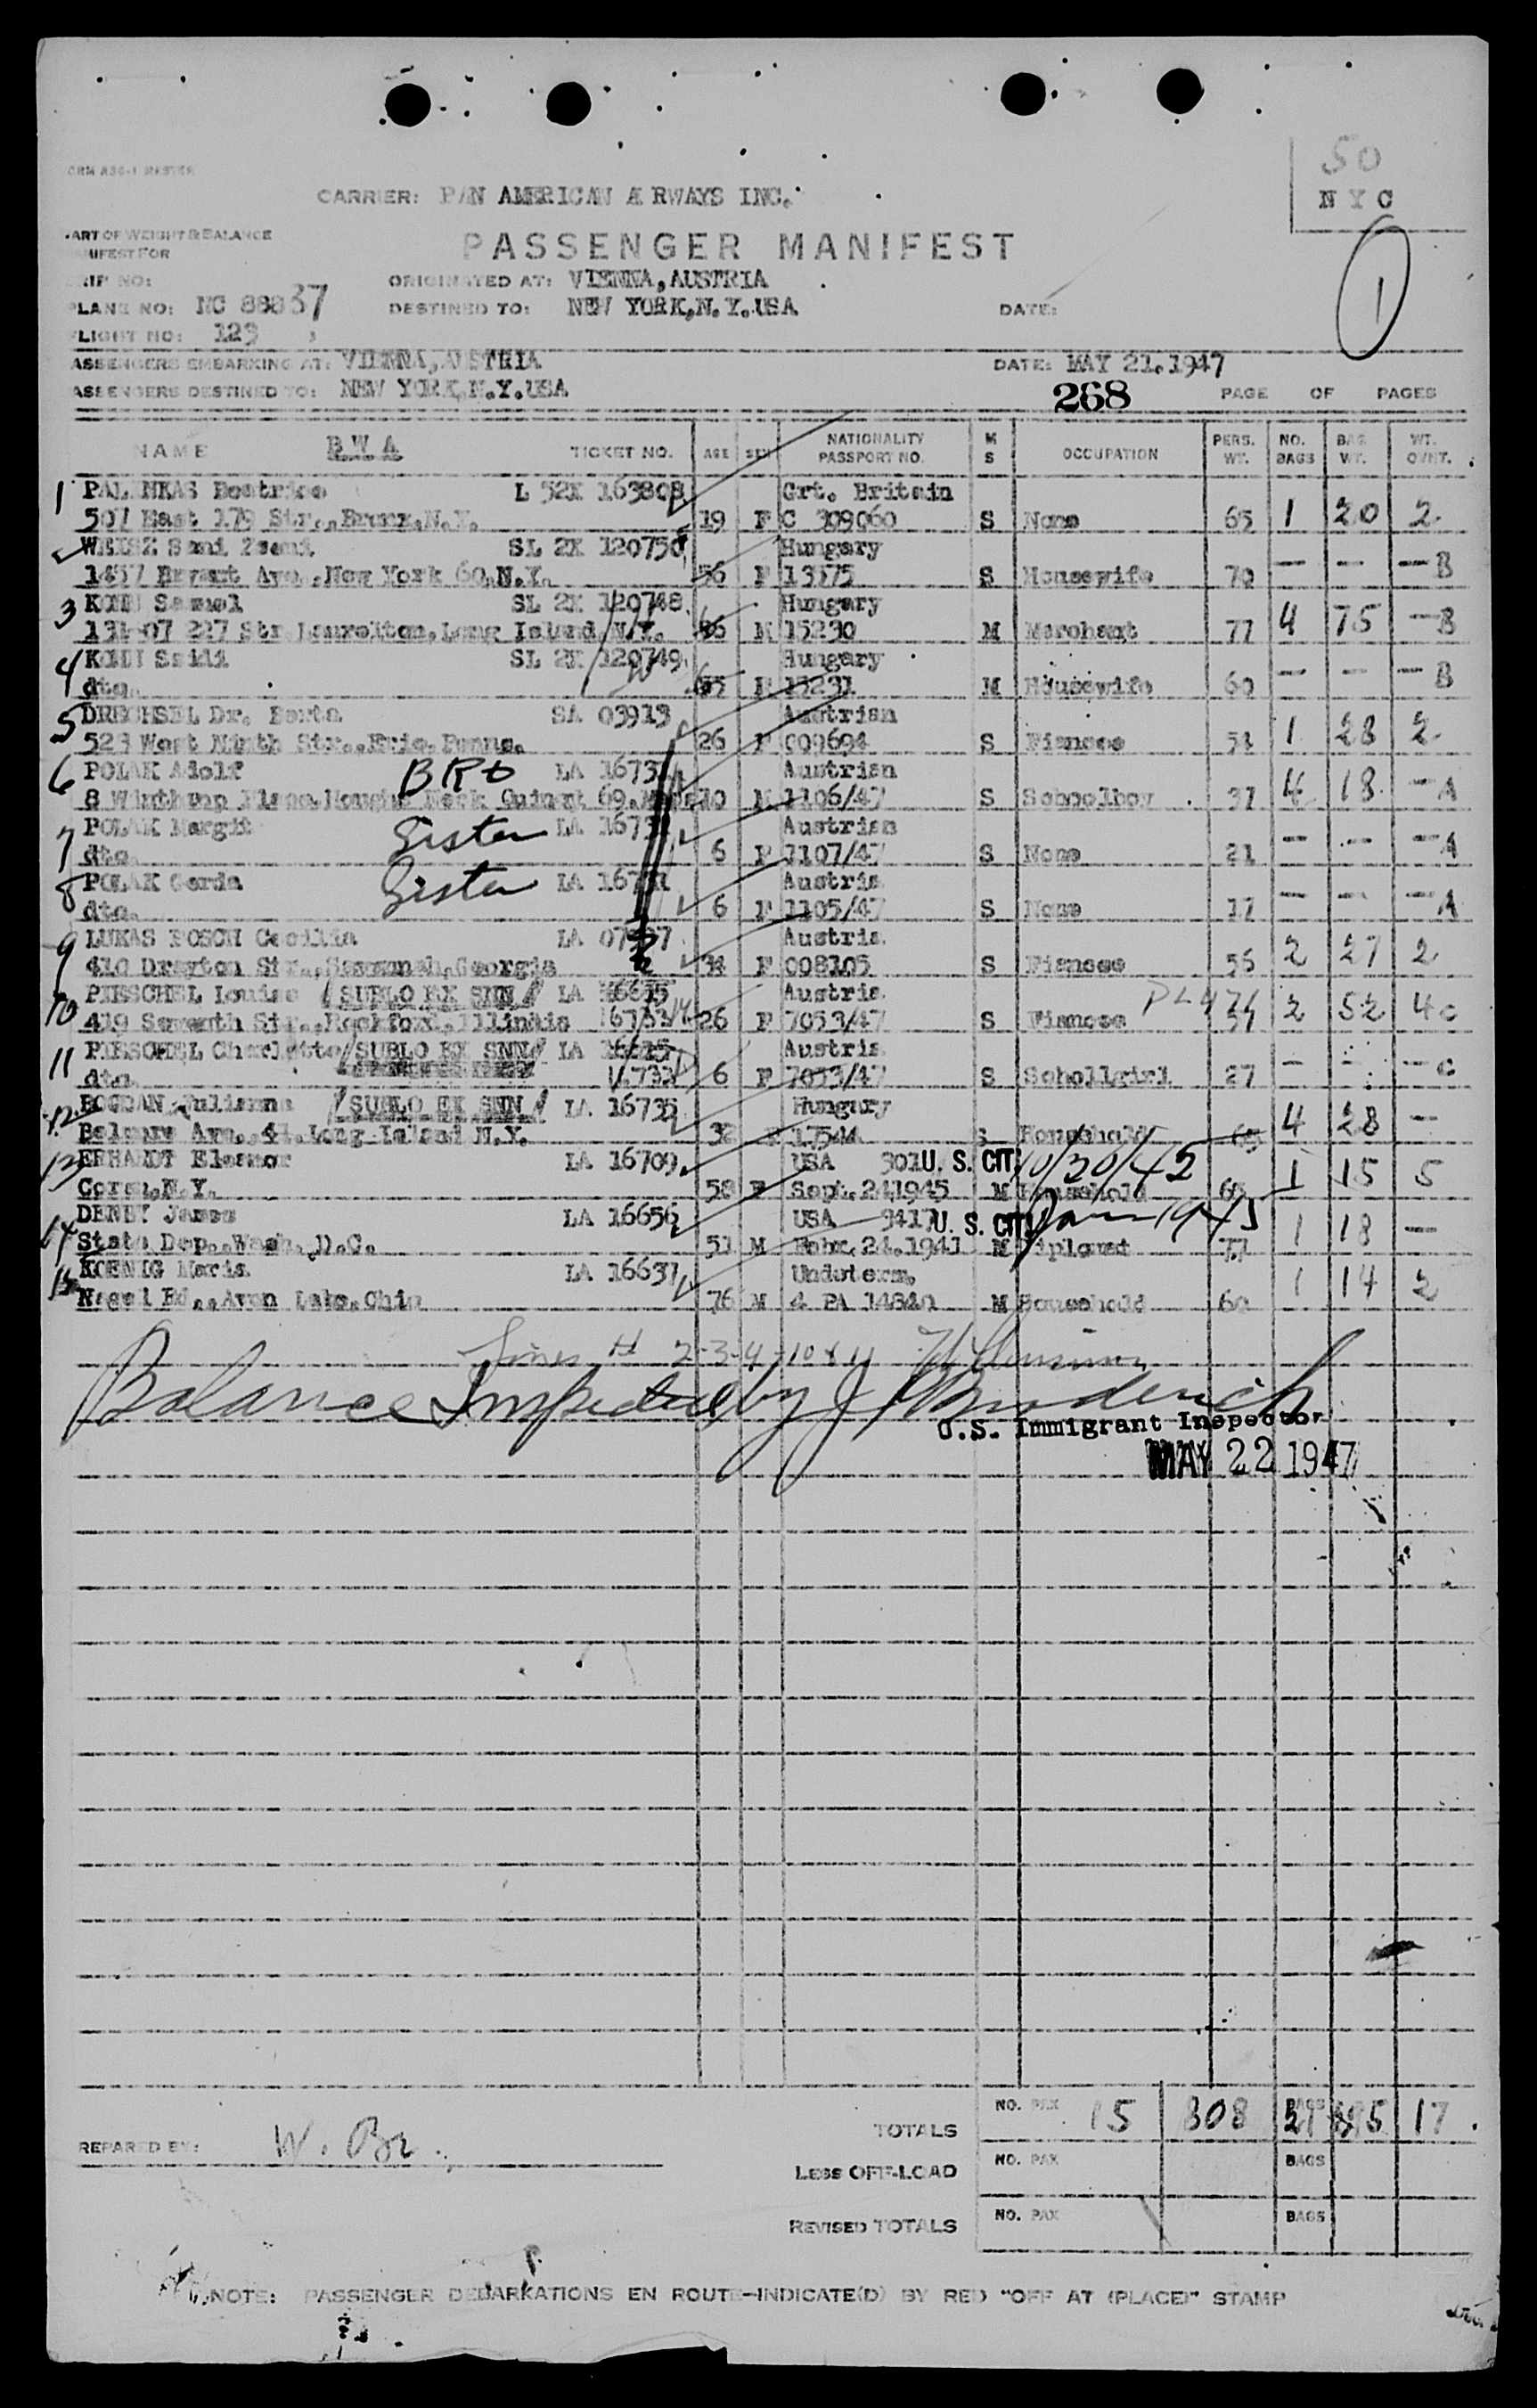 50
N Y C
CARRIER: PAN AMERICAN AIRWAYS INC.
PART OF WEIGHT & BALANCE
MANIFEST FOR
PASSENGER MANIFEST
1
TRIP NO:
ORIGINATED AT: VIENNA, AUSTRIA
PLANE NO: NC 88837
DESTINED TO: NEW YORK, N.Y. USA
DATE:
FLIGHT NO: 123
PASSENGERS EMBARKING AT: VIENNA, AUSTRIA
DATE: MAY 21. 1947
PASSENGERS DESTINED TO: NEW YORK, N.Y. USA
268 PAGE OF PAGES
NAME B W A TICKET NO. AGE SEX NATIONALITY PASSPORT NO. M S OCCUPATION PERS. WT. NO. BAGS BAG. WT. WT. OVHT.
1 PALINKAS Beatrice L 52X 163808 Grt. Britain
507 East 179 Str., Bronx, N.Y. 19 F C 309060 S None 65 1 20 2
WEISZ SL 2X 120750 Hungary
Ave., New York 60, N.Y. 56 F 13175 S Housewife 70 — — — B
3 KOHN Samuel SL 2X 120748 Hungary
131-07 227 Str. Laurelton, Long Island, N.Y. 15230 M Merchant 77 4 75 — B
4 KOHN SL 2X 120749 Hungary
dto. F 15231 M Housewife 60 — — — B
5 DRECHSEL Dr. Berta SA 03913 Austrian
523 West Ninth Str., Erie, Penna. 26 F 009694 S Fiancee 54 1 28 2
6 POLAK Adolf BRO LA Austrian
8 Winthrop Place, 69, 10 M 1106/47 S Schoolboy 37 4 18 — A
7 POLAK Margit Sister LA Austrian
dto. 6 F 1107/47 S None 21 — — — A
8 POLAK Gerda Sister LA Austria
dto. 6 F 1105/47 S None 17 — — — A
9 LUKAS POSCH Cecilia LA Austria
410 Drayton Str., Savannah, Georgia F 008105 S Fiancee 56 2 27 2
10 PIESCHEL Louise /SUBLO EX SNN/ LA Austria
419 Seventh Str., Rockford, Illinois 26 F 7053/47 S Fiancee 2 52 4 C
11 PIESCHEL Charlotte /SUBLO EX SNN/ LA Austria
dto. 6 F 7053/47 S Schollgirl 27 — — — C
12 BOGDAN Julianna /SUBLO EX SNN/ LA 16735 Hungary
Ave. Long Island N.Y. 32 17544 Household 4 28 —
13 ERHARDT Eleanor LA 16709 USA 301 U. S. CIT. 10/30/42
N.Y. 58 F Sept. 24, 1945 M Household 1 15 5
14 DENBY James LA 16656 USA U. S. CIT.
State Dep., Wash., D.C. 51 M Febr. 24. 1941 M Diplomat 77 1 18 —
15 KOENIG Maria LA 16637 Undeterm.
Rd., Avon Lake, Ohio 76 M M Household 60 1 14 2
Lines # 2-3-4-10 & 11
Balance Inspected by
U.S. Immigrant Inspector
MAY 22 1947
TOTALS NO. PAX 15 808 BAGS 21 17
PREPARED BY: W. Br.
LESS OFF-LOAD NO. PAX BAGS
REVISED TOTALS NO. PAX BAGS
NOTE: PASSENGER DEBARKATIONS EN ROUTE—INDICATE(D) BY RED "OFF AT (PLACE)" STAMP